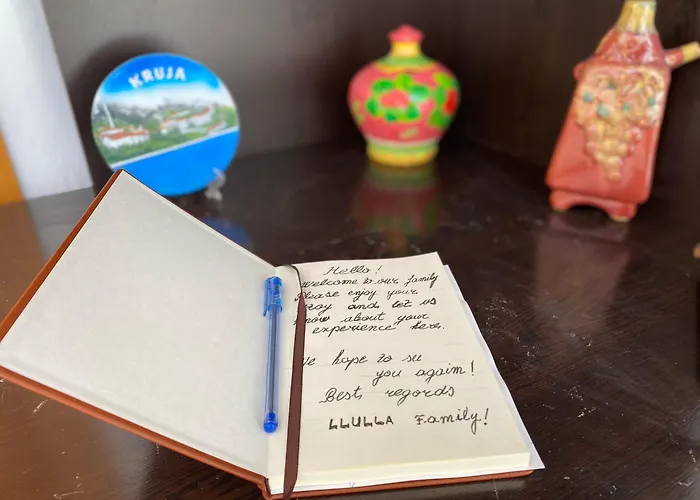 KRUJA
Hello!
Welcome to our family
Please enjoy your
stay and let us
know about your
experience here.
We hope to see
you againn!
Best regords
LLULLA Family!